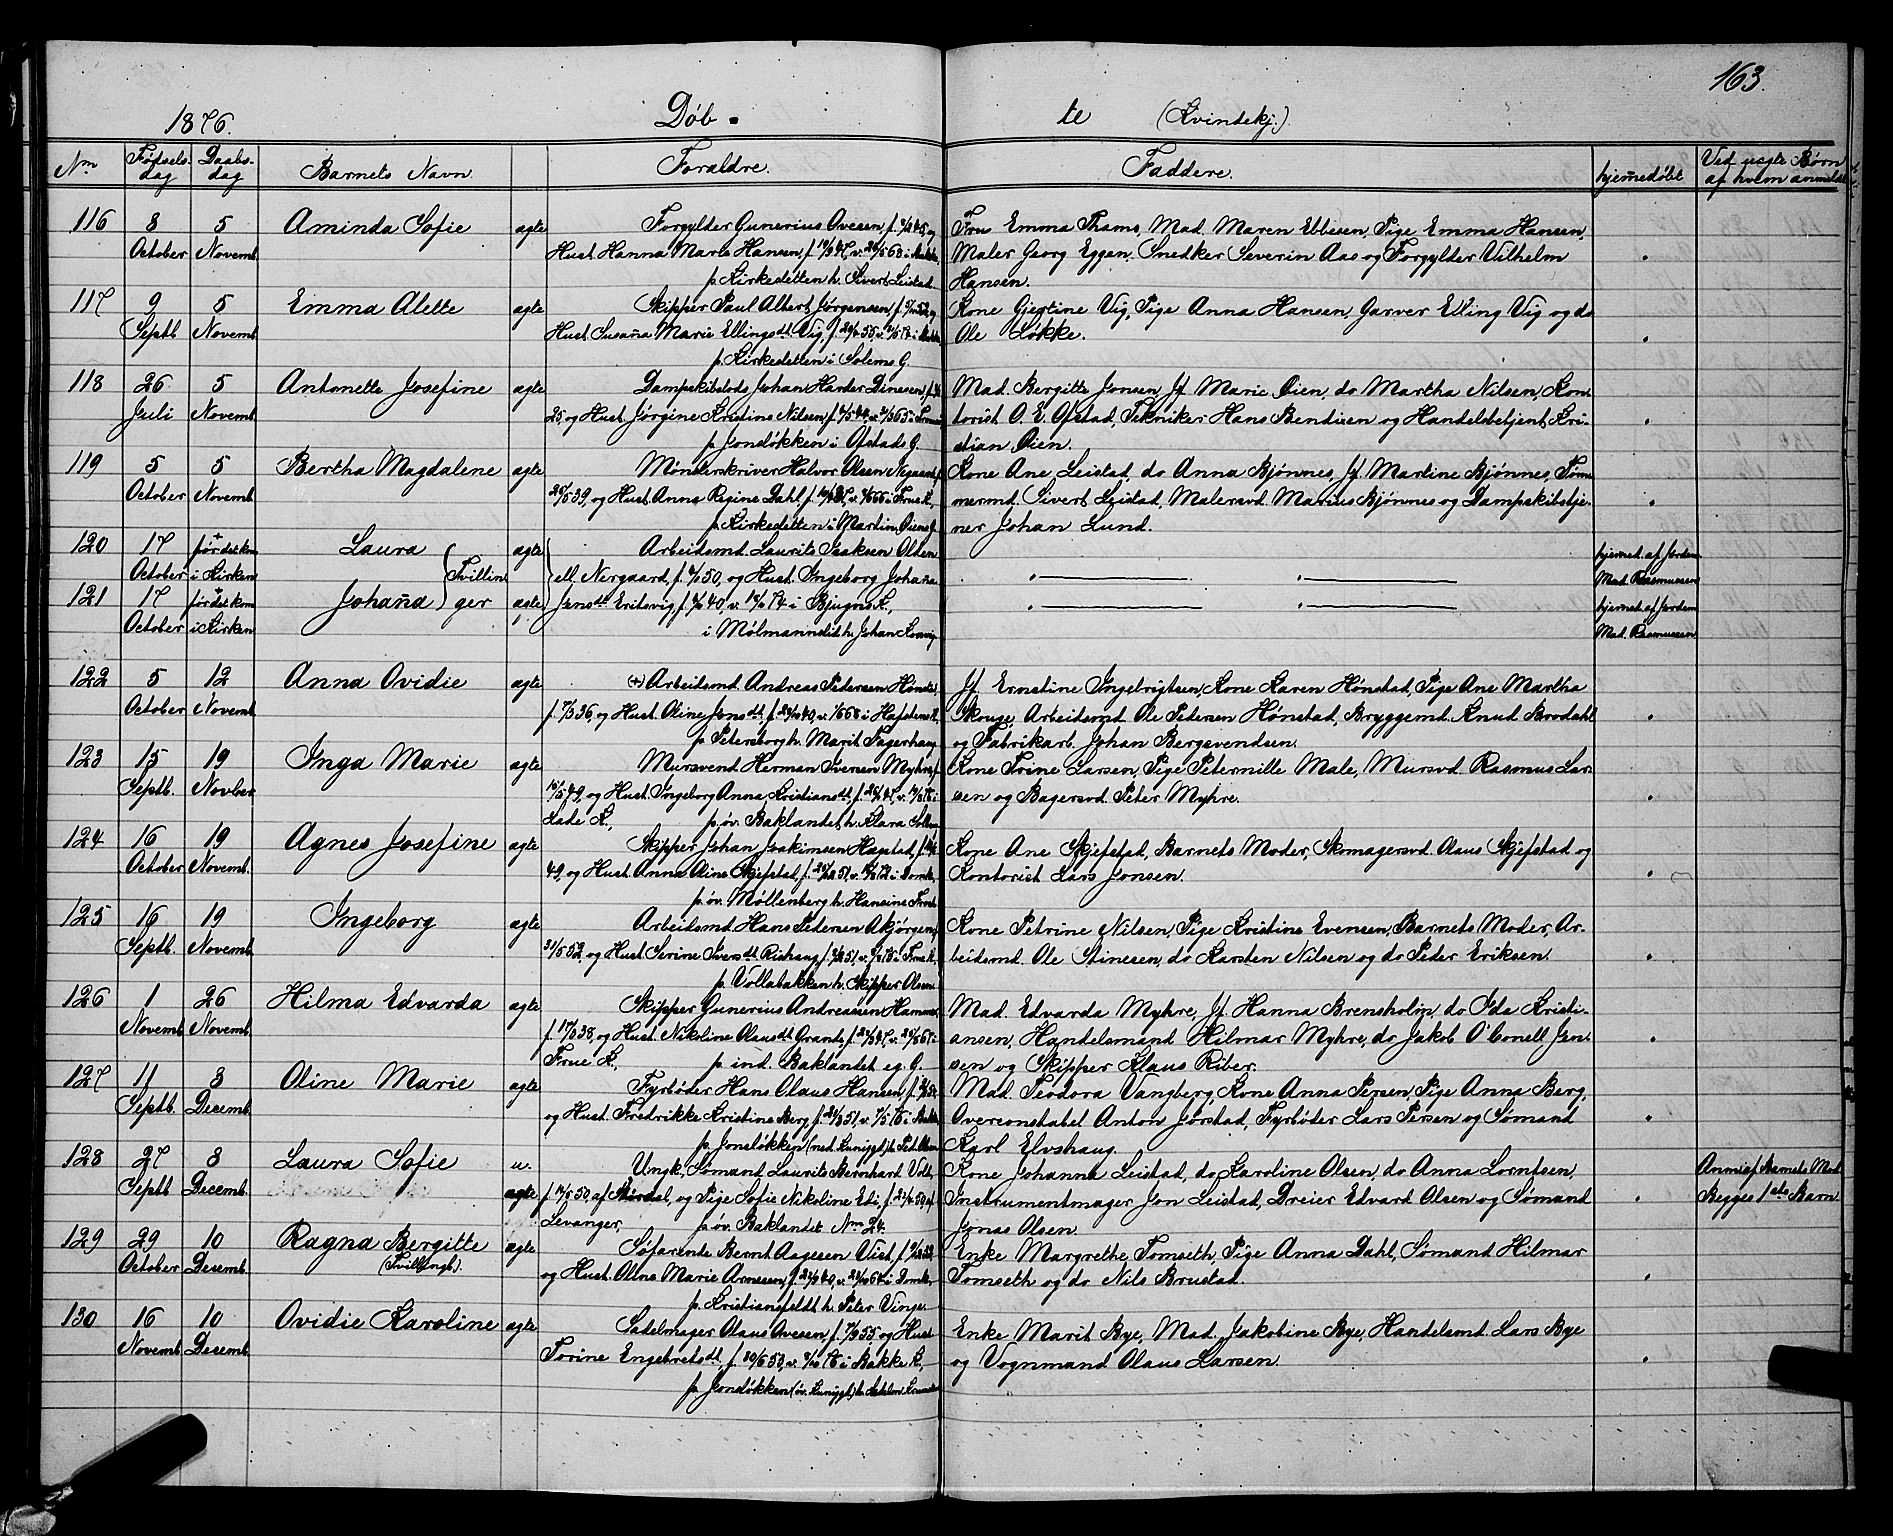 163.
1876. Døb- te (Kvindekj.)
Nm Fødsels- dag Daabs- dag Barnets Navn. Foraldre. Faddere. hjemmedøbt Ved uegte Børn af hvem anmeldt
116 8 October 5 Novemb. Aminda Sofie ægte
Forgylder Gunerius Ovesen, f.
Hust. Hanna Marta Hansen,
p. Kirkesletten h. Sivert Leistad.
Frue Emma Thams, Mad. Maren Ebbesen, Pige Emma Hansen,
Maler Georg Eggen, Snedker Severin Aas og Forgylder Vilhelm
Hansen.
117 9 Septb. 5 Novemb. Emma Alette ægte
Skipper Paul Albert Jørgensen, f.
Hust. Susaña Marie Ellingsdt. Vig,
p. Kirkesletten i Solems G.
Kone Gjertine Vig, Pige Anna Hansen, Garver Elling Vig og do
Ole Løkke.
118 26 Juli 5 Novemb. Antonette Josefine ægte
Dampskibslods Johan Harder Dinesen, f.
25, og Hust. Jørgine Kristine Nilsen,
p. Jonsløkken i Ofstads G.
Mad. Bergitte Jonsen, Jf. Marie Øien, do Martha Nilsen, Kon-
torist O. E. Ofstad, Tekniker Hans Bendixen og Handelsbetjent Kri-
stian Øien.
119 5 October 5 Novemb. Bertha Magdalene ægte
Mønsterskriver Halvor Olsen
39, og Hust. Anna Regine Dahl, i Frue K.,
p. Kirkesletten i Martin Øiens G.
Kone Ane Leistad, do Anna Bjønnes, Jf. Martine Bjønnes, Tøm-
mermd. Sivert Leistad, Malersvd. Marius Bjønnes og Dampskibstje-
ner Johan Lund.
120 17 October + før det kom i Kirken Laura ægte
Arbeidsmd. Laurits Isaksen Olden
hjemmed. af Jordem.
Mad. Rasmussen
121 17 October + før det kom i Kirken Johaña Tvillin- ger ægte
ell. Nergaard, og Hust. Ingeborg Johaña
Jensdt. i Bjugns K.,
i h. Johan
hjemmed. af Jordem.
Mad. Rasmussen
122 5 October 12 Novemb. Anna Ovidie ægte
(+) Arbeidsmd. Andreas Pedersen Hønstad,
36, og Hust. Oline Jensdt.,
p. Petersborg h. Marit Fagerhaug
Jf. Ernstine Ingebrigtsen, Kone Karen Hønstad, Pige Ane Martha
Skouge, Arbeidsmd. Ole Pedersen Hønstad, Bryggemd. Knud Brodahl
og Fabrikarb. Johan Bergsvendsen.
123 15 Septb. 19 Novber Inga Marie ægte
Mursvend Herman Svensen Myhre,
49, og Hust. Ingeborg Anna Kristiansdt.,
Lade K., p. øv. Baklandet h. Klara
Kone Trine Larsen, Pige Peternille Male, Mursvd. Rasmus Lar-
sen og Bagersvd. Peter Myhre.
124 16 October 19 Novemb. Agnes Josefine ægte
Skipper Johan Joakimsen Hegstad,
49, og Hust. Anna Oline Skjefstad, i Domk.,
p. øv. Møllenberg h. Hansine
Kone Ane Skjefstad, Barnets Moder, Skomagersvd. Olaus Skjefstad og
Kontorist Lars Jonsen.
125 16 Septb. 19 Novemb. Ingeborg ægte
Arbeidsmd. Hans Pedersen
52, og Hust. Serine Iversdt. i Frue K.,
p. Vollabakken h. Skipper Olsen
Kone Petrine Nilsen, Pige Kristine Evensen, Barnets Moder, Ar-
beidsmd. Ole Stinesen, do Karsten Nilsen og do Peder Eriksen.
126 1 Novemb. 26 Novemb. Hilma Edvarda ægte
Skipper Gunerius Andreassen Hammer,
38, og Hust. Nikoline Olausdt. Grande,
Frue K., p. ind. Baklandet eg. G.
Mad. Edvarda Myhre, Jf. Hanna Brensholm, do Ida Kristi-
ansen, Handelsmand Hilmar Myhre, do Jakob O'Conell Jen-
sen og Skipper Klaus Riber.
127 11 Septb. 3 Decemb. Oline Marie ægte
Fyrbøder Hans Olaus Hansen,
og Hust. Fredrikke Kristine Berg,
p. Jonsløkken
Mad. Teodora Vangberg, Kone Anna Persen, Pige Anna Berg,
Overconstabel Anton Jørstad, Fyrbøder Lars Persen og Sømand
Karl Elvshaug.
128 27 Septb. 3 Decemb. Laura Sofie u. ægte
Ungk. Sømand Laurits Bernhard
og Pige Sofie Nikoline
Levanger, p. øv. Baklandet Nm 24.
Kone Johanna Leistad, do Karoline Olsen, do Anna Lorntsen,
Instrumentmager Jon Leistad, Dreier Edvard Olsen og Sømand
Jonas Olsen.
Anm. af Barnets Mod.
Begges 1ste Barn.
129 29 October 10 Decemb. Ragna Bergitte (Tvillingb.) ægte
Søfarende Bernt Aagesen Vist,
og Hust. Oline Marie Arnesen, i Domk.,
p. Kristiansfeldt h. Peter Vinge
Enke Margrethe Tomseth, Pige Anna Dahl, Sømand Hilmar
Tomseth og do Nils Brustad.
130 16 Novemb. 10 Decemb. Ovidie Karoline ægte
Sadelmager Olaus Ovesen, og Hust.
Torine Engebretsdt., i Bakke K.,
p. Jonsløkken
Enke Marit Bye, Mad. Jakobine Bye, Handelsmd. Lars Bye
og Vognmand Olaus Larsen.